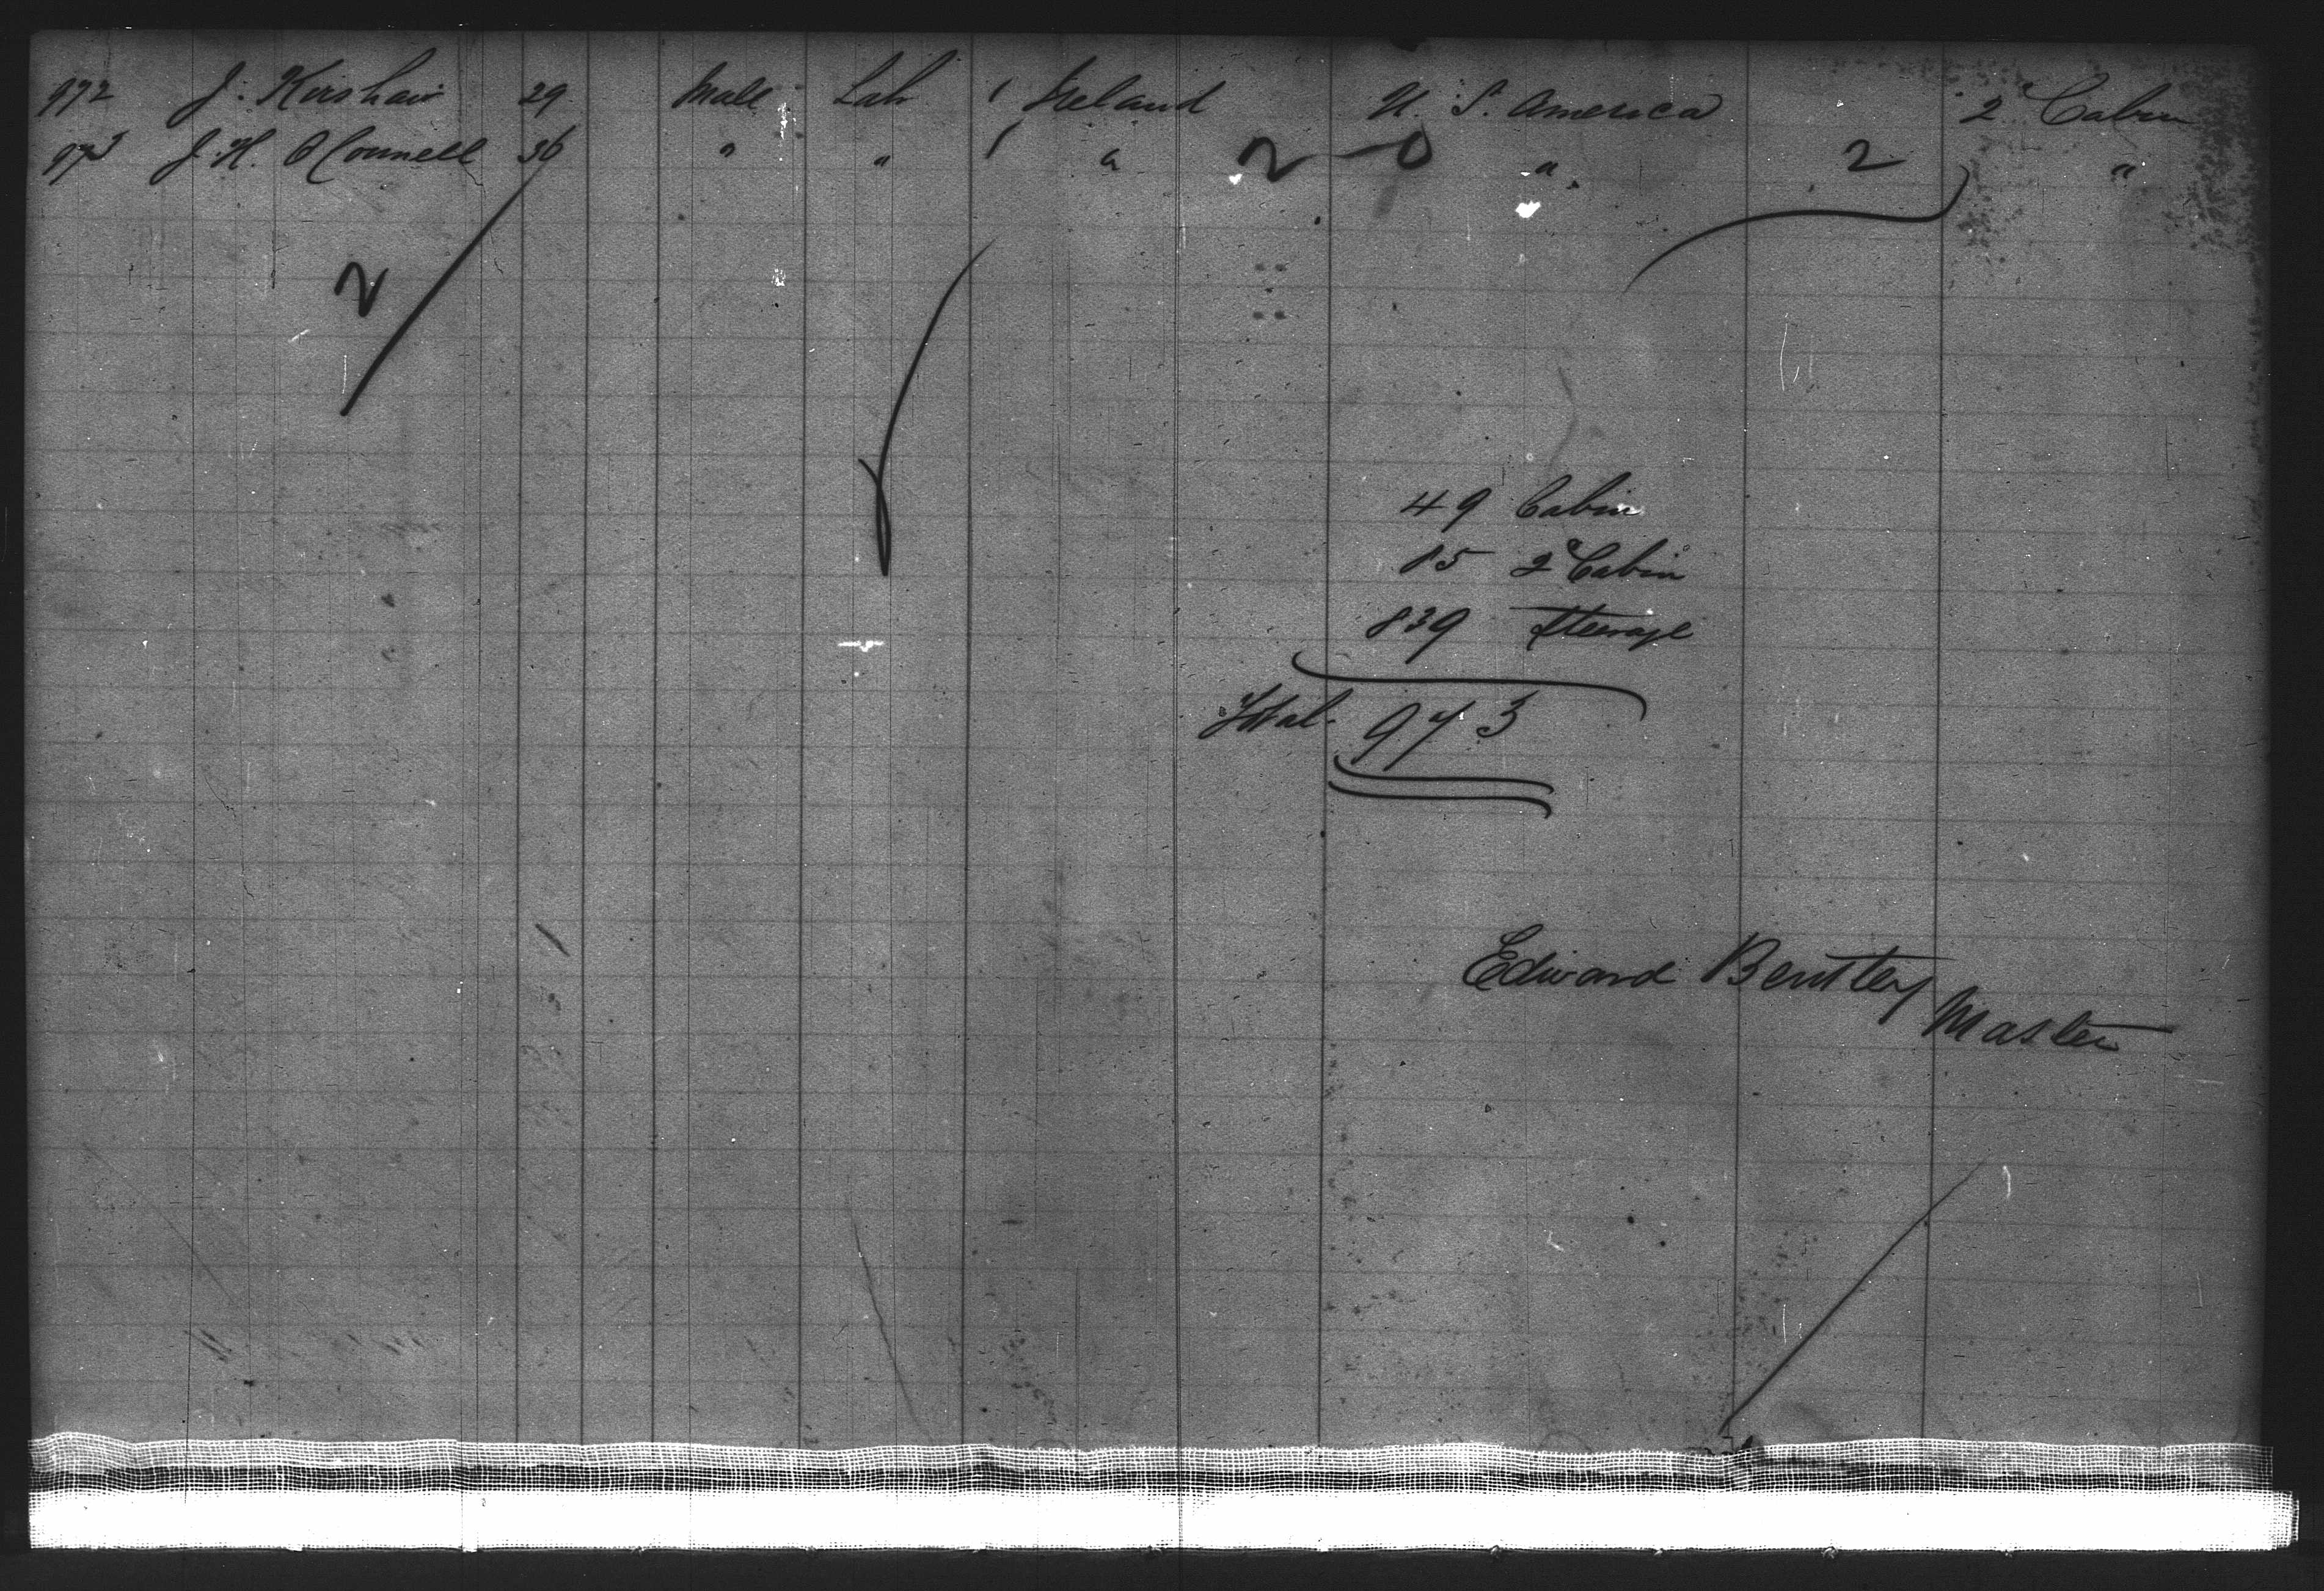 972 J. Kirshaw 29 Male Lab 1 Ireland U. S. America 2d Cabin
973 J. H. O'Connell 36 " " 1 " 2 0 " 2 "
2
49 Cabin
85 2d Cabin
839 Steerage
Total 973
Edward Bentley
Master